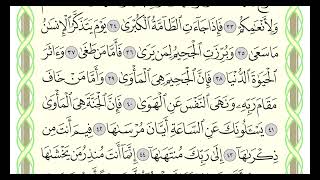 وَلِأَنْعَٰمِكُمْ ٣٣ فَإِذَا جَآءَتِ ٱلطَّآمَّةُ ٱلْكُبْرَىٰ ٣٤ يَوْمَ يَتَذَكَّرُ ٱلْإِنسَٰنُ
مَا سَعَىٰ ٣٥ وَبُرِّزَتِ ٱلْجَحِيمُ لِمَن يَرَىٰ ٣٦ فَأَمَّا مَن طَغَىٰ ٣٧ وَءَاثَرَ
ٱلْحَيَوٰةَ ٱلدُّنْيَا ٣٨ فَإِنَّ ٱلْجَحِيمَ هِىَ ٱلْمَأْوَىٰ ٣٩ وَأَمَّا مَنْ خَافَ
مَقَامَ رَبِّهِۦ وَنَهَى ٱلنَّفْسَ عَنِ ٱلْهَوَىٰ ٤٠ فَإِنَّ ٱلْجَنَّةَ هِىَ ٱلْمَأْوَىٰ
٤١ يَسْـَٔلُونَكَ عَنِ ٱلسَّاعَةِ أَيَّانَ مُرْسَىٰهَا ٤٢ فِيمَ أَنتَ مِن
ذِكْرَىٰهَآ ٤٣ إِلَىٰ رَبِّكَ مُنتَهَىٰهَآ ٤٤ إِنَّمَآ أَنتَ مُنذِرُ مَن يَخْشَىٰهَا